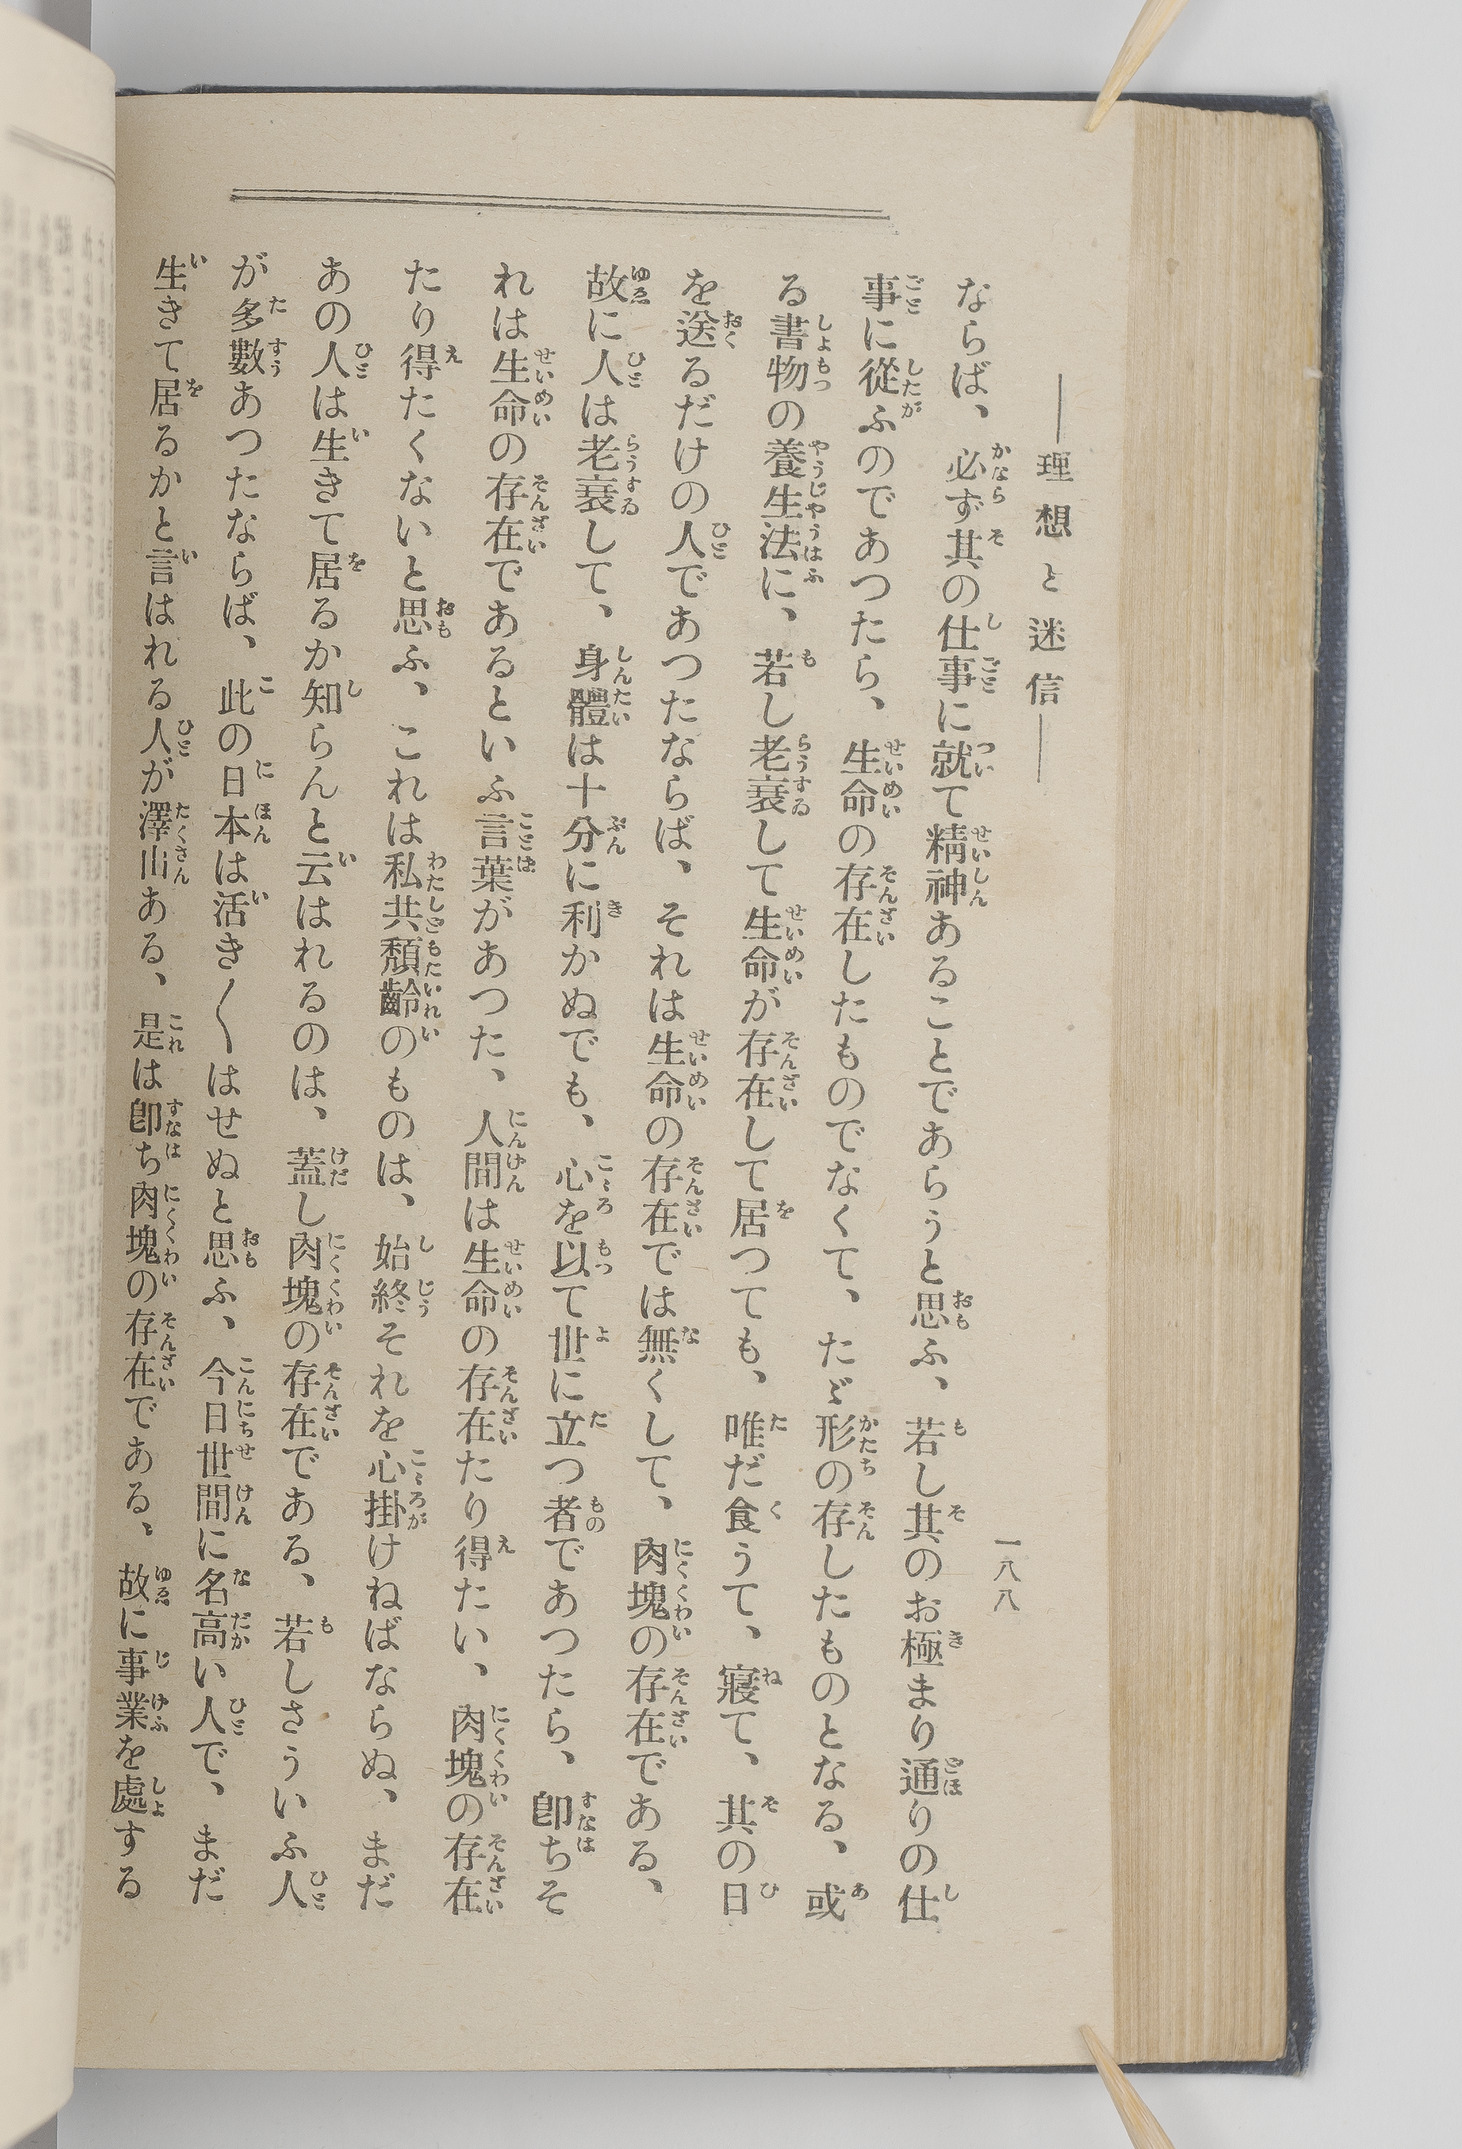 ―理想と迷信―
一八八
ならば、必ず其の仕事に就て精神あることであらうと思ふ、若し其のお極まり通りの仕
事に從ふのであつたら、生命の存在したものでなくて、たゞ形の存したものとなる、或
る書物の養生法に、若し老衰して生命が存在して居つても、唯だ食うて、寢て、其の日
を送るだけの人であつたならば、それは生命の存在では無くして、肉塊の存在である、
故に人は老衰して、身體は十分に利かぬでも、心を以て世に立つ者であつたら、卽ちそ
れは生命の存在であるといふ言葉があつた、人間は生命の存在たり得たい、肉塊の存在
たり得たくないと思ふ、これは私共頽齡のものは、始終それを心掛けねばならぬ、まだ
あの人は生きて居るか知らんと云はれるのは、蓋し肉塊の存在である、若しさういふ人
が多數あつたならば、此の日本は活き〱はせぬと思ふ、今日世間に名高い人で、まだ
生きて居るかと言はれる人が澤山ある、是は卽ち肉塊の存在である、故に事業を處する